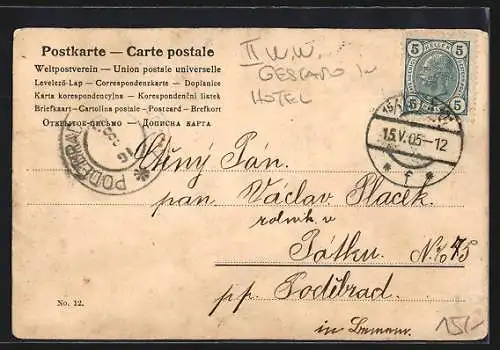 Postkarte — Carte postale
Weltpostverein — Union postale universelle
Levelező-Lap — Correspondenzkarte — Dopisnice
Karta korespondencyjna — Korespondenční lístek
Briefkart — Cartolina postale — Postcard — Brefkort
Открытое письмо — Дописна карта
II W.W.
GESTAPO IN
HOTEL
5 HELLER 5
5 5
15.V.05-12
* f *
PODĚBRAD
Ctěný Pán.
pan. Václav Placek.
rolník v
Pátku. No 45
pp. Poděbrad.
No. 12.
15/-